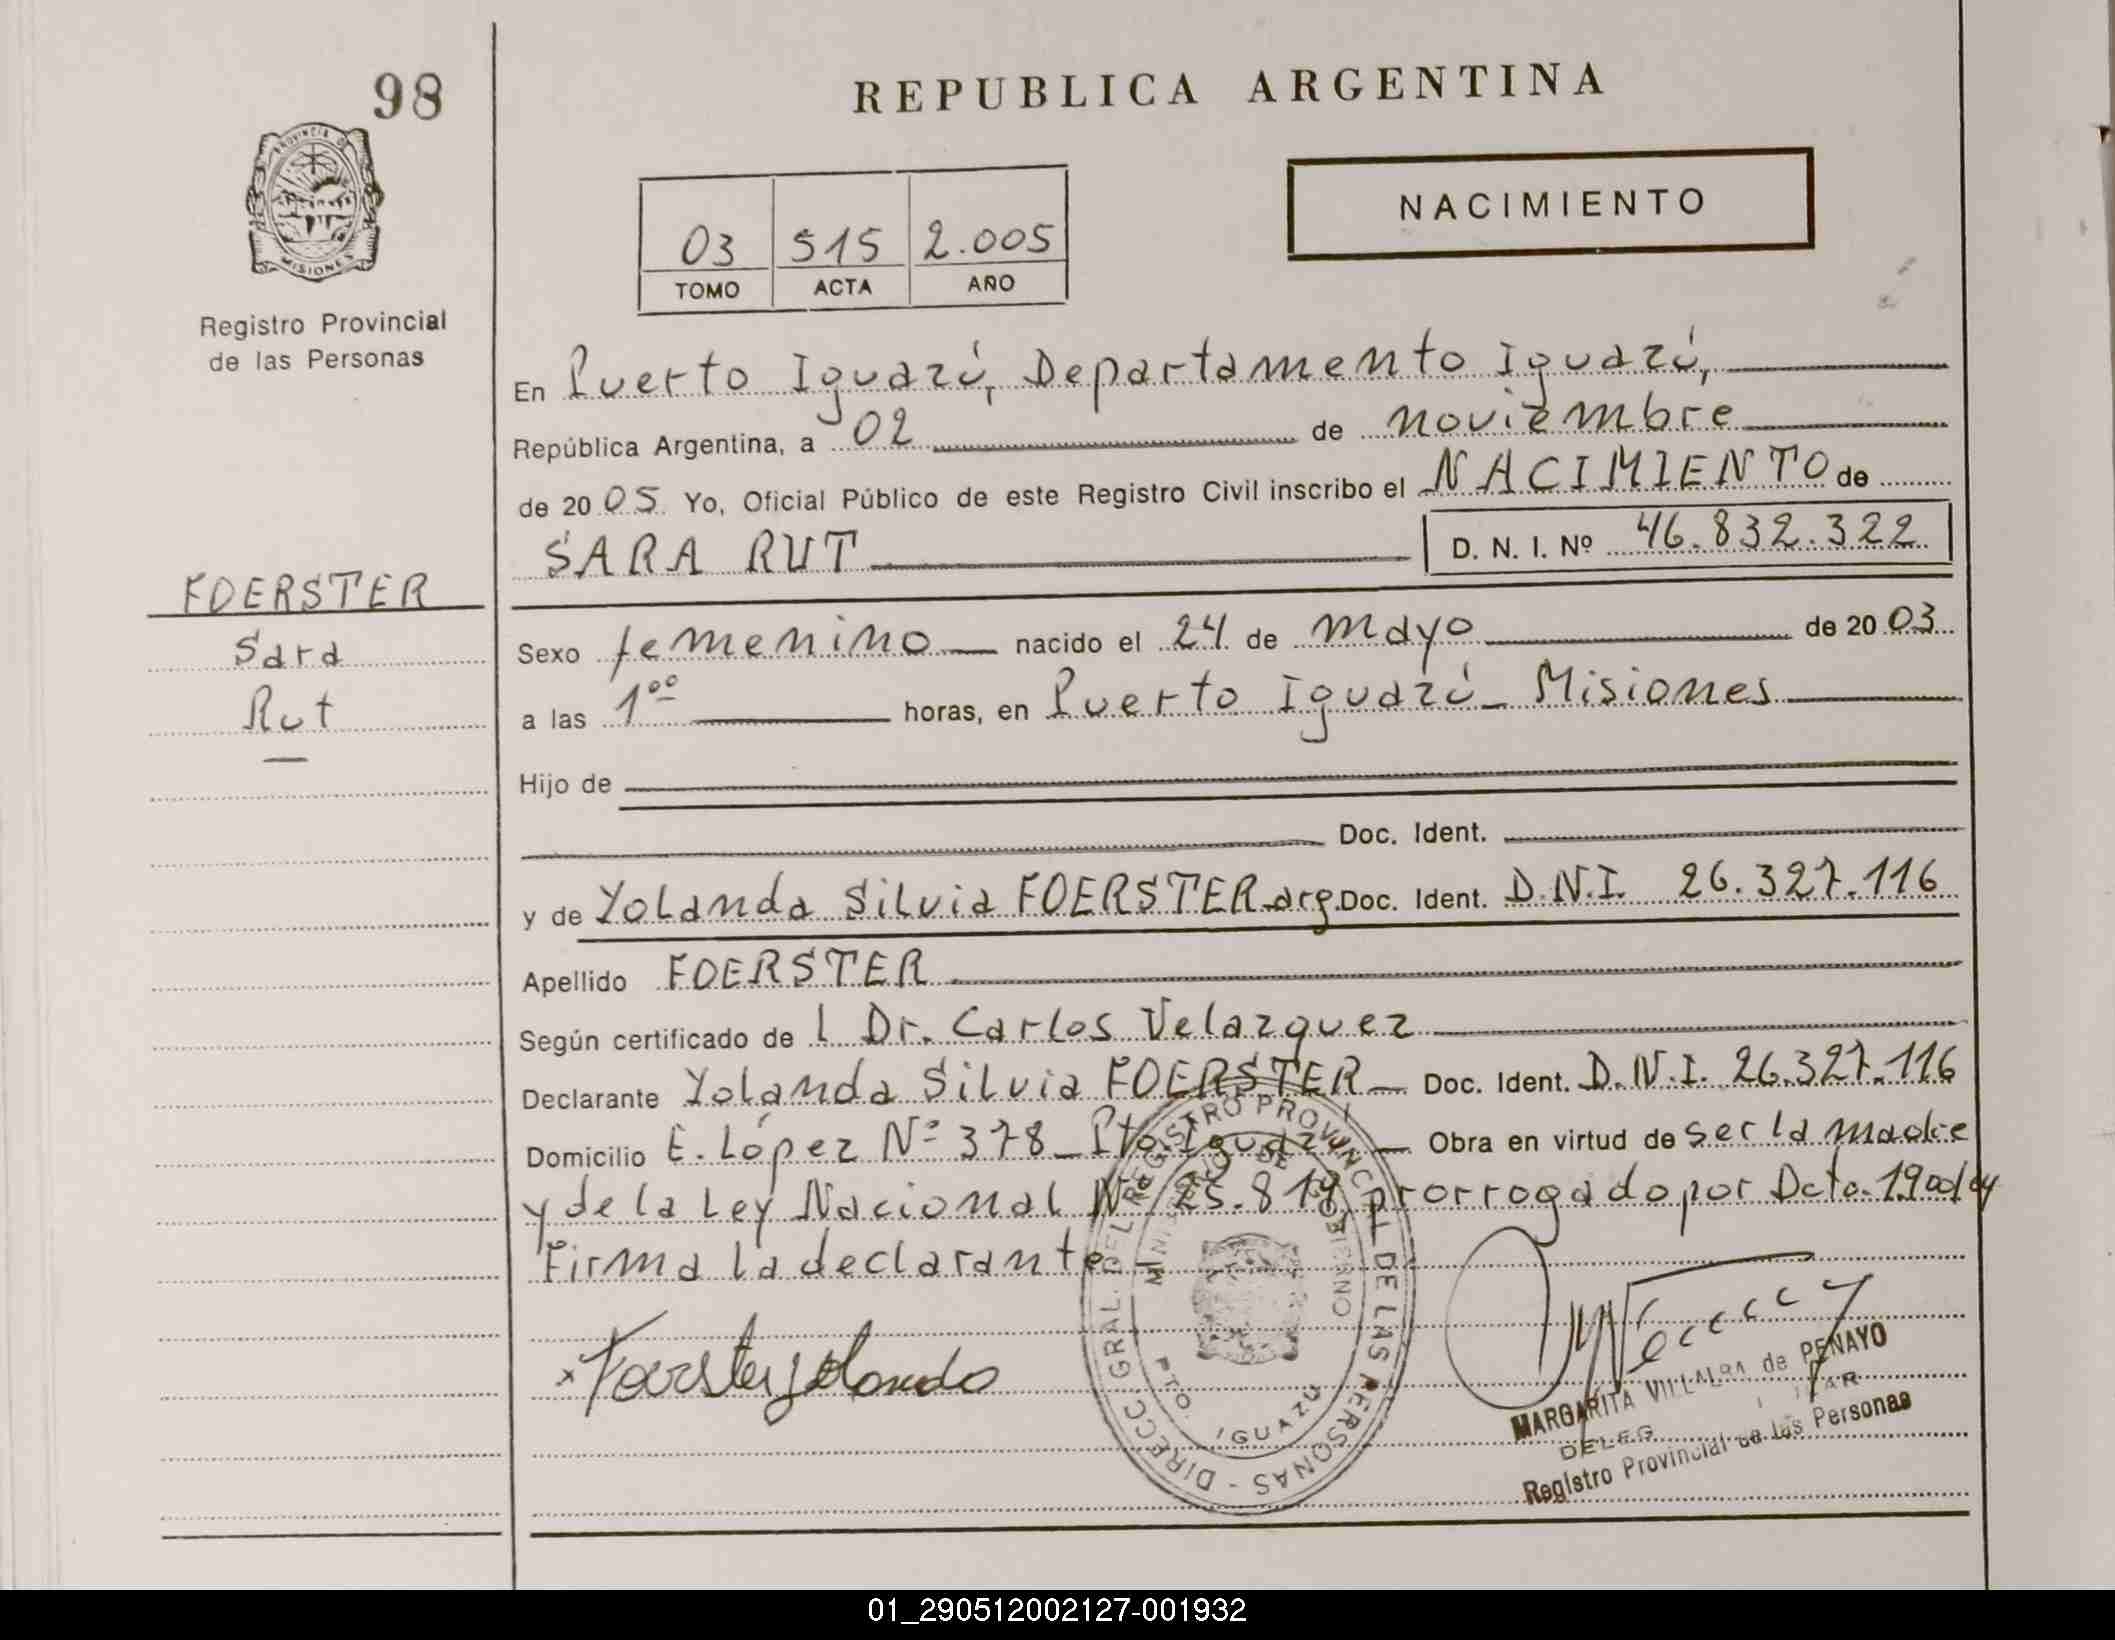 98
REPUBLICA ARGENTINA
PROVINCIA DE
MISIONES
Registro Provincial
de las Personas
NACIMIENTO
03 515 2.005
TOMO ACTA AÑO
En Puerto Iguazú, Departamento Iguazú,
República Argentina, a 02 de noviembre
de 2005 Yo, Oficial Público de este Registro Civil inscribo el NACIMIENTO de
SARA RUT D. N. I. Nº 46.832.322
FOERSTER
Sara
Rut
Sexo femenino nacido el 24 de mayo de 2003
a las 1ºº horas, en Puerto Iguazú_ Misiones
Hijo de
Doc. Ident.
y de Yolanda Silvia FOERSTER_arg. Doc. Ident. D.N.I. 26.327.116
Apellido FOERSTER
Según certificado de l Dr. Carlos Velazquez
Declarante Yolanda Silvia FOERSTER Doc. Ident. D.N.I. 26.327.116
Domicilio E. López Nº 378_Pto. Iguazú Obra en virtud de ser la madre
y de la Ley Nacional Nº 25.819, prorrogado por Dcto.
Firma la declarante
Foerster Yolanda
DIRECC. GRAL. DEL REGISTRO PROVINCIAL DE LAS PERSONAS -
MINISTERIO DE GOBIERNO
PTO. IGUAZU
MARGARITA VILLALBA de PENAYO
DELEG
Registro Provincial de las Personas
01_290512002127-001932